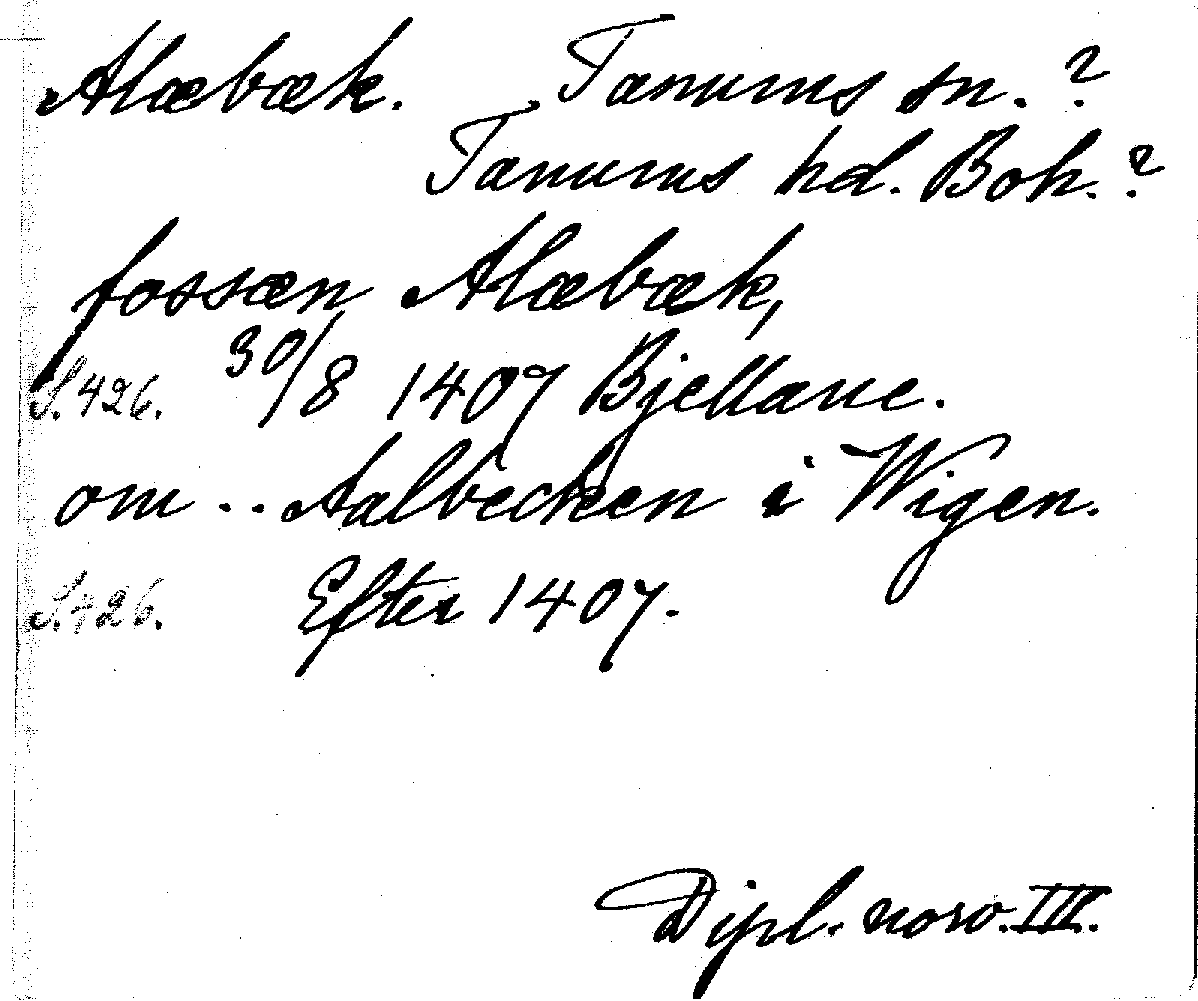 Alæbæk. Tanums sn.?
Tanums hd. Boh.?
fossæn Alæbæk,
S.426. 30/8 1407 Bjellane.
om .. Aalbecken i Wigen.
S.426. Efter 1407.
Dipl. norv. III.